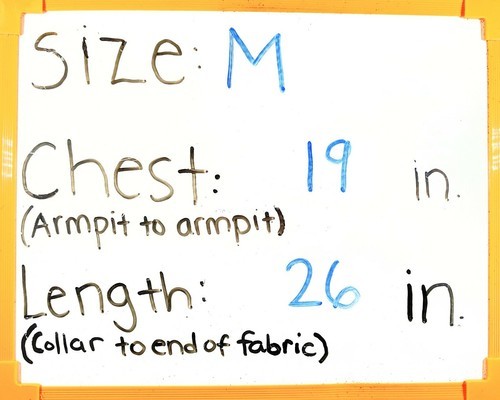 Size: M
Chest: 19 in.
(Armpit to armpit)
Length: 26 in.
(Collar to end of fabric)